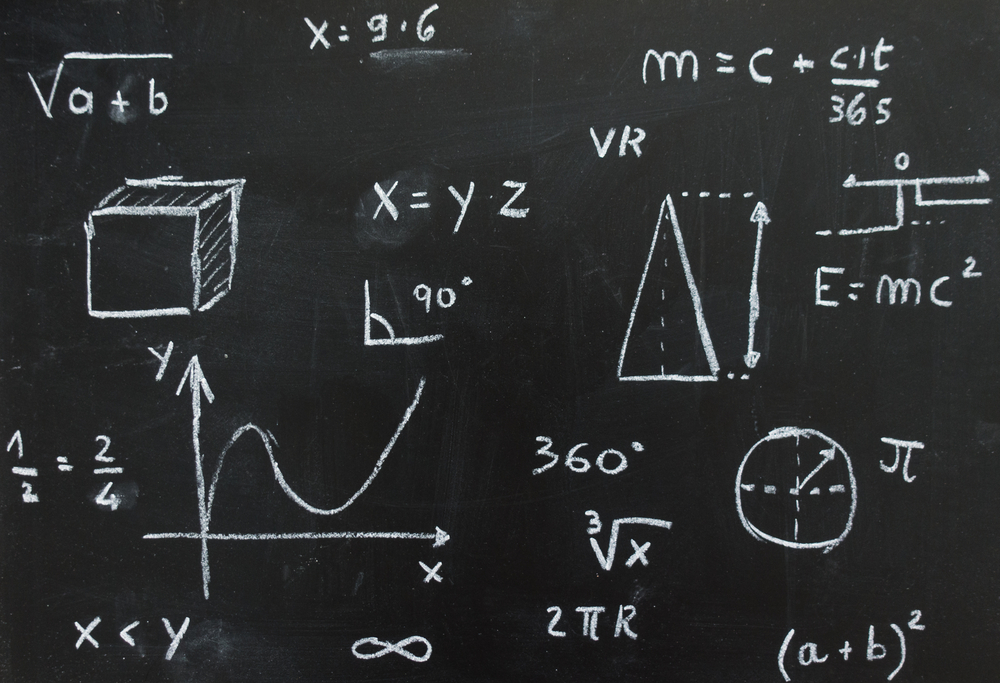 x = 9·6
√(a + b)
m = c + c·i·t/365
VR
0
x = y·z
90°
E = mc²
y
1/2 = 2/4
360°
π
³√x
x
2πR
x < y
∞
(a + b)²